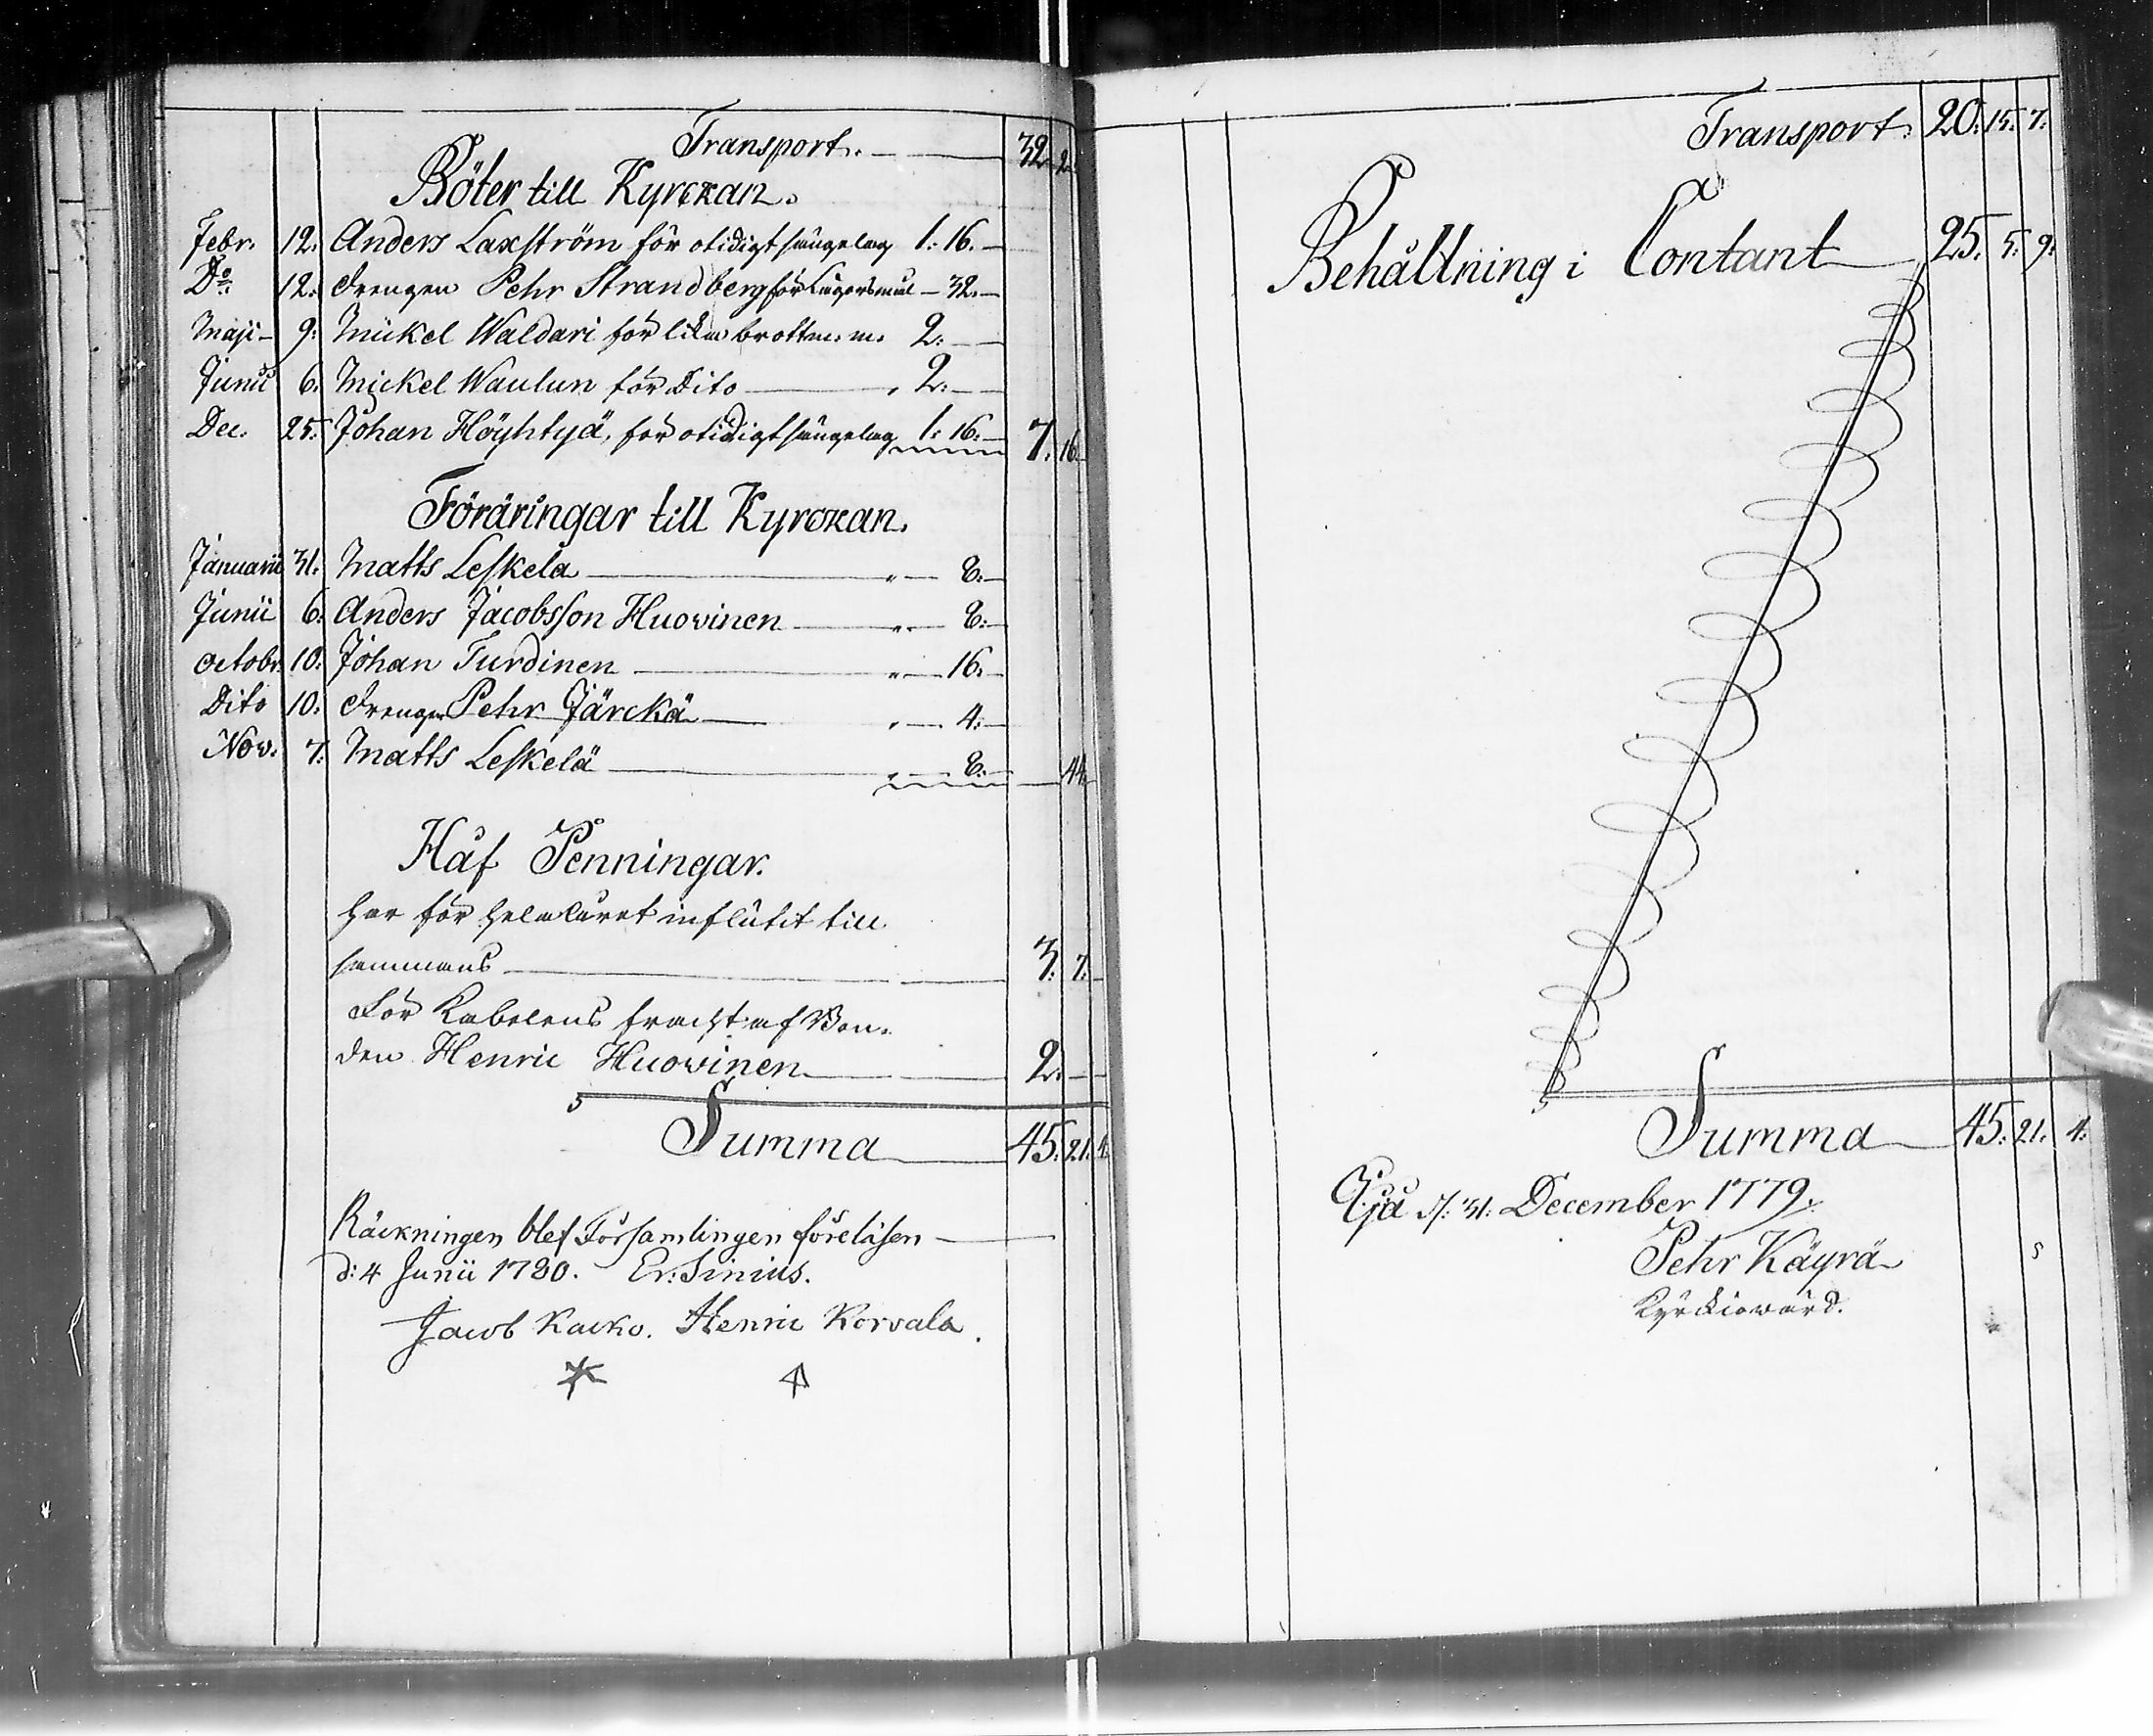 Transport. 32. 2.
Böter till Kyrckan.
Febr. 12. Anders Laxström för otidigt sängelag 1: 16.
Do 12. Drengen Pehr Strandberg för Lägersmål 32.
Maji 9: Mickel Waldari för lika brott m. m. 2:
Junii 6. Mickel Waulun för Dito 2:
Dec. 25: Johan Höyhtyä, för otidigt sängelag 1: 16: 7. 16.
Föräringar till Kyrckan.
Januarii 31. Matts Leskela 8.
Junii 6. Anders Jacobsson Huovinen 8.
octobr. 10. Johan Turdinen 16.
Dito 10. Drengen Pehr Järckä 4.
Nov. 7. Matts Leskelä 8. 44.
Håf Penningar.
har för hela åhret influtit till
sammans 3. 7.
För Kabelens fracht af Bon-
den Henric Huovinen 2.
Summa 45. 21. 4.
Räckningen blef Församlingen föreläsen
d: 4 Junii 1780. Er: Sinius.
Jacob Kacko. Henric Korvala.
Transport. 20. 15. 7.
Behållning i Contant 25. 5. 9.
Summa 45. 21. 4.
d. 31. December 1779.
Pehr Käyrä
Kyrckiowärd.